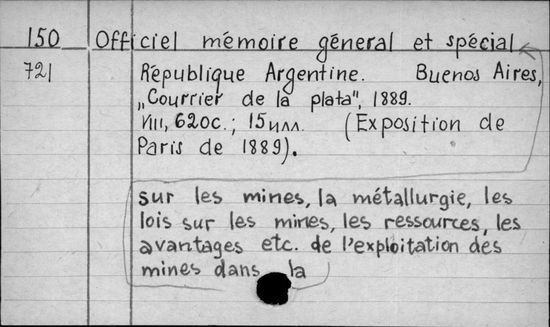 150 Officiel mémoire géneral et spécial
721 République Argentine. Buenos Aires,
„Courrier de la plata", 1889.
VIII, 620с.; 15илл. (Exposition de
Paris de 1889).
sur les mines, la métallurgie, les
lois sur les mines, les ressources, les
avantages etc. de l'exploitation des
mines dans la